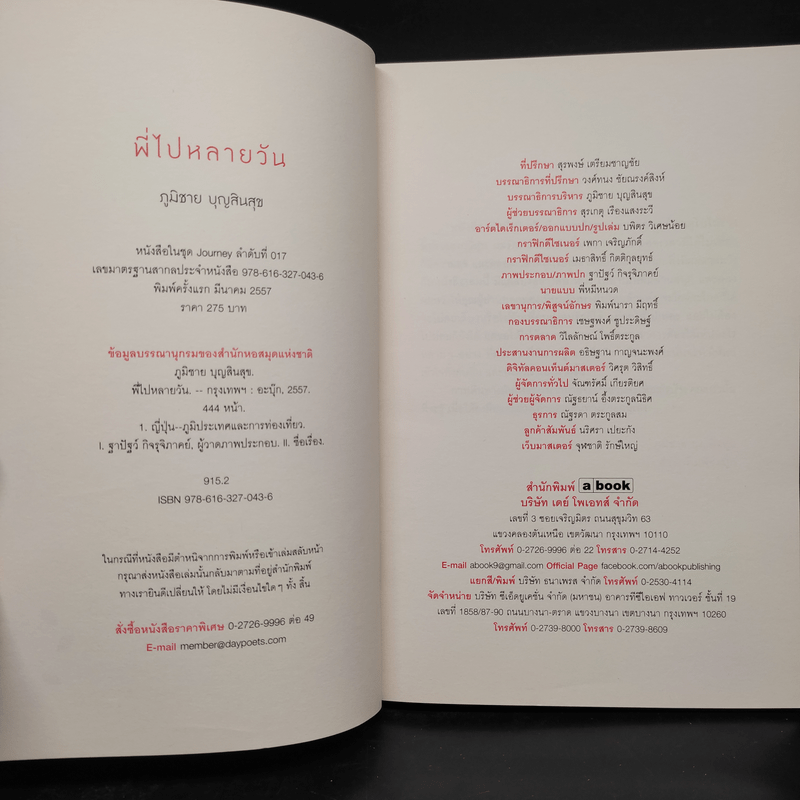 พี่ไปหลายวัน
ภูมิชาย บุญสินสุข
หนังสือในชุด Journey ลำดับที่ 017
เลขมาตรฐานสากลประจำหนังสือ 978-616-327-043-6
พิมพ์ครั้งแรก มีนาคม 2557
ราคา 275 บาท
ข้อมูลบรรณานุกรมของสำนักหอสมุดแห่งชาติ
ภูมิชาย บุญสินสุข.
พี่ไปหลายวัน. -- กรุงเทพฯ : อะบุ๊ก, 2557.
444 หน้า.
1. ญี่ปุ่น--ภูมิประเทศและการท่องเที่ยว.
I. ฐาปัฐว์ กิจรุจิภาคย์, ผู้วาดภาพประกอบ. II. ชื่อเรื่อง.
915.2
ISBN 978-616-327-043-6
ในกรณีที่หนังสือมีตำหนิจากการพิมพ์หรือเข้าเล่มสลับหน้า
กรุณาส่งหนังสือเล่มนั้นกลับมาตามที่อยู่สำนักพิมพ์
ทางเรายินดีเปลี่ยนให้ โดยไม่มีเงื่อนไขใด ๆ ทั้ง สิ้น
สั่งซื้อหนังสือราคาพิเศษ 0-2726-9996 ต่อ 49
E-mail member@daypoets.com
ที่ปรึกษา สุรพงษ์ เตรียมชาญชัย
บรรณาธิการที่ปรึกษา วงศ์ทนง ชัยณรงค์สิงห์
บรรณาธิการบริหาร ภูมิชาย บุญสินสุข
ผู้ช่วยบรรณาธิการ สุรเกตุ เรืองแสงระวี
อาร์ตไดเร็กเตอร์/ออกแบบปก/รูปเล่ม บพิตร วิเศษน้อย
กราฟิกดีไซเนอร์ เพกา เจริญภักดิ์
กราฟิกดีไซเนอร์ เมธาสิทธิ์ กิตติกุลยุทธ์
ภาพประกอบ/ภาพปก ฐาปัฐว์ กิจรุจิภาคย์
นายแบบ พี่หมีหนวด
เลขานุการ/พิสูจน์อักษร พิมพ์นารา มีฤทธิ์
กองบรรณาธิการ เชษฐพงศ์ ชูประดิษฐ์
การตลาด วิไลลักษณ์ โพธิ์ตระกูล
ประสานงานการผลิต อธิษฐาน กาญจนะพงศ์
ดิจิทัลคอนเท็นต์มาสเตอร์ วิศรุต วิสิทธิ์
ผู้จัดการทั่วไป จัณฑรัศมิ์ เกียรติยศ
ผู้ช่วยผู้จัดการ ณัฐธยาน์ อึ้งตระกูลนิธิศ
ธุรการ ณัฐรดา ตระกูลสม
ลูกค้าสัมพันธ์ นริศรา เปยะกัง
เว็บมาสเตอร์ จุฬชาติ รักษ์ใหญ่
สำนักพิมพ์ a book
บริษัท เดย์ โพเอทส์ จำกัด
เลขที่ 3 ซอยเจริญมิตร ถนนสุขุมวิท 63
แขวงคลองตันเหนือ เขตวัฒนา กรุงเทพฯ 10110
โทรศัพท์ 0-2726-9996 ต่อ 22 โทรสาร 0-2714-4252
E-mail abook9@gmail.com Official Page facebook.com/abookpublishing
แยกสี/พิมพ์ บริษัท ธนาเพรส จำกัด โทรศัพท์ 0-2530-4114
จัดจำหน่าย บริษัท ซีเอ็ดยูเคชั่น จำกัด (มหาชน) อาคารทีซีไอเอฟ ทาวเวอร์ ชั้นที่ 19
เลขที่ 1858/87-90 ถนนบางนา-ตราด แขวงบางนา เขตบางนา กรุงเทพฯ 10260
โทรศัพท์ 0-2739-8000 โทรสาร 0-2739-8609